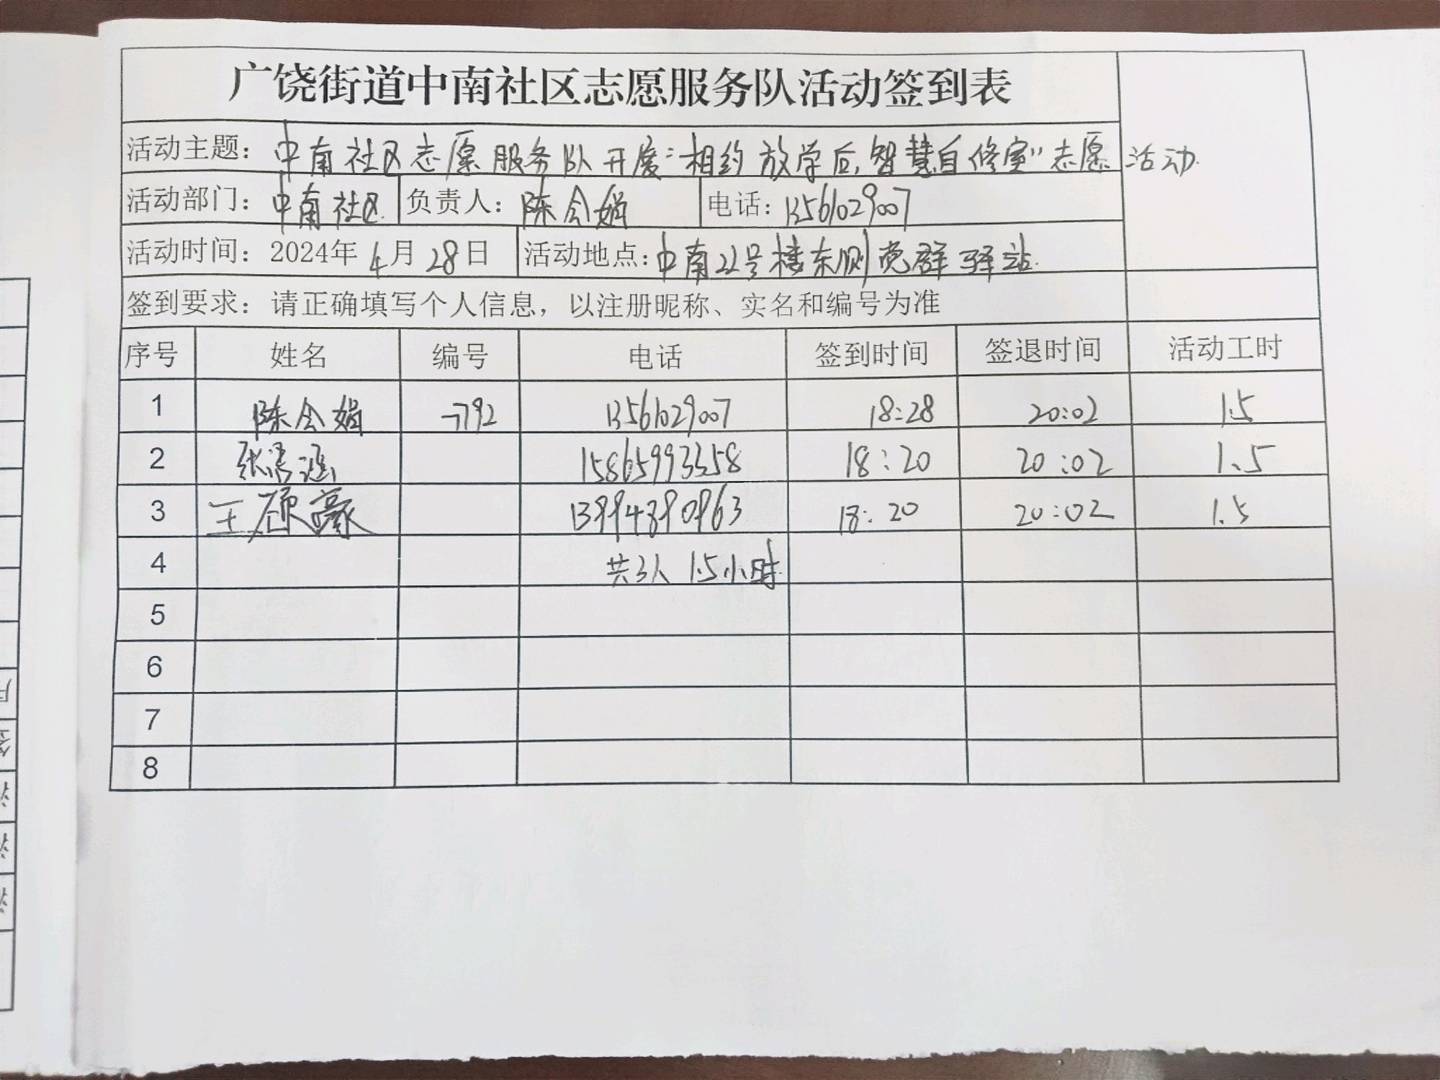 广饶街道中南社区志愿服务队活动签到表
活动主题：中南社区志愿服务队开展“相约放学后，智慧自修室”志愿活动
活动部门：中南社区 负责人：陈会娟 电话：13561029007
活动时间：2024年4月28日 活动地点：中南22号楼东侧党群驿站
签到要求：请正确填写个人信息，以注册昵称、实名和编号为准
序号 姓名 编号 电话 签到时间 签退时间 活动工时
1 陈会娟 -792 13561029007 18:28 20:02 1.5
2 15865993358 18:20 20:02 1.5
3 王硕豪 13994890963 18:20 20:02 1.5
4 共3人 1.5小时
5
6
7
8